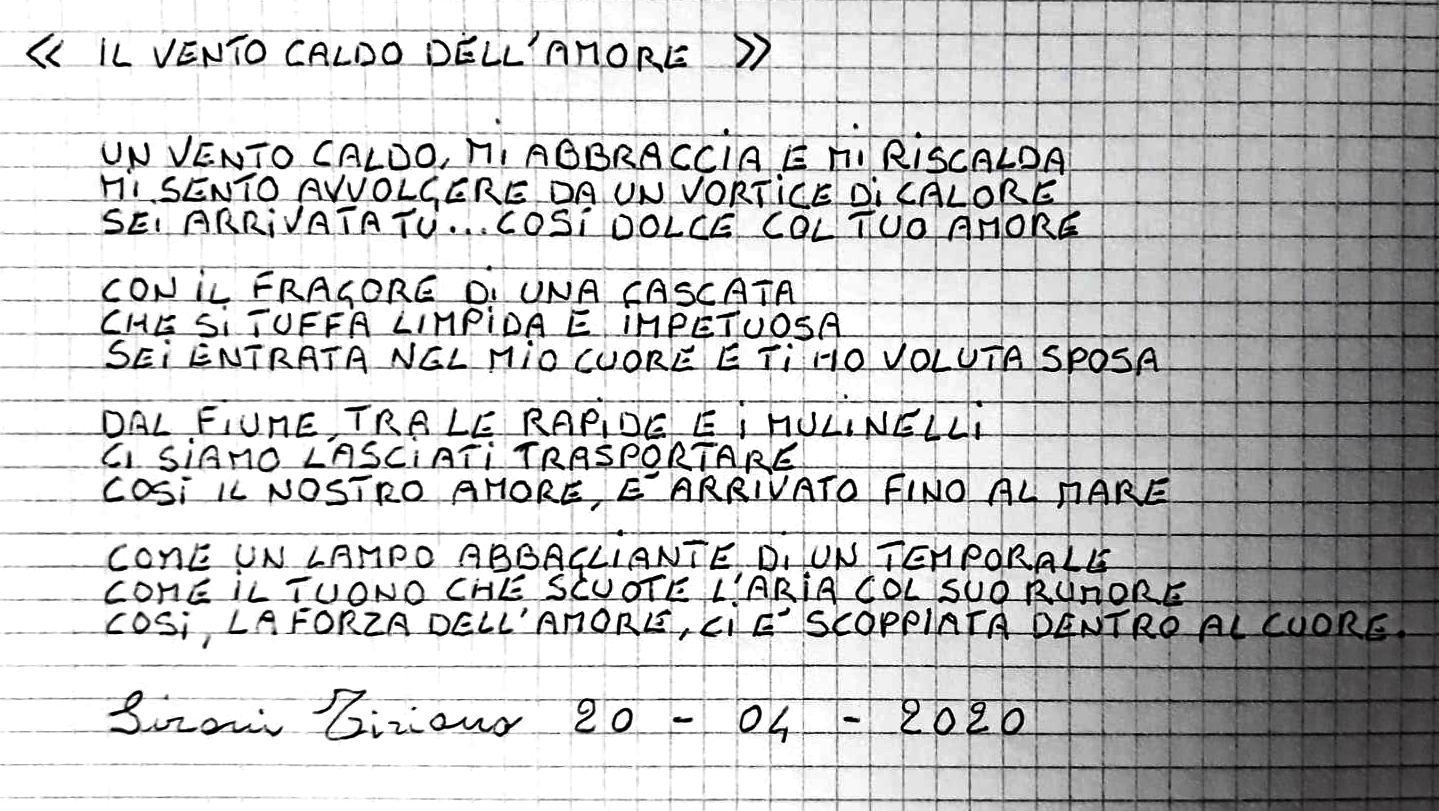 << IL VENTO CALDO DELL'AMORE >>
UN VENTO CALDO, Mi ABBRACCIA E Mi RiSCALDA
Mi SENTO AVVOLGERE DA UN VORTiCE Di CALORE
SEi ARRiVATA TU...COSÍ DOLCE COL TUO AMORE
CON iL FRAGORE Di UNA CASCATA
CHE Si TUFFA LIMPiDA E IMPETUOSA
SEi ENTRATA NEL MiO CUORE E Ti HO VOLUTA SPOSA
DAL FiUME, TRA LE RAPiDE E i MULiNELLi
Ci SiAMO LASCiATi TRASPORTARE
COSÍ IL NOSTRO AMORE, E' ARRIVATO FINO AL MARE
COME UN LAMPO ABBAGLiANTE Di UN TEMPORALE
COME iL TUONO CHE SCUOTE L'ARiA COL SUO RUMORE
COSÍ, LA FORZA DELL'AMORE, Ci E' SCOPPIATA DENTRO AL CUORE.
Sironi Tiziano 20 - 04 - 2020